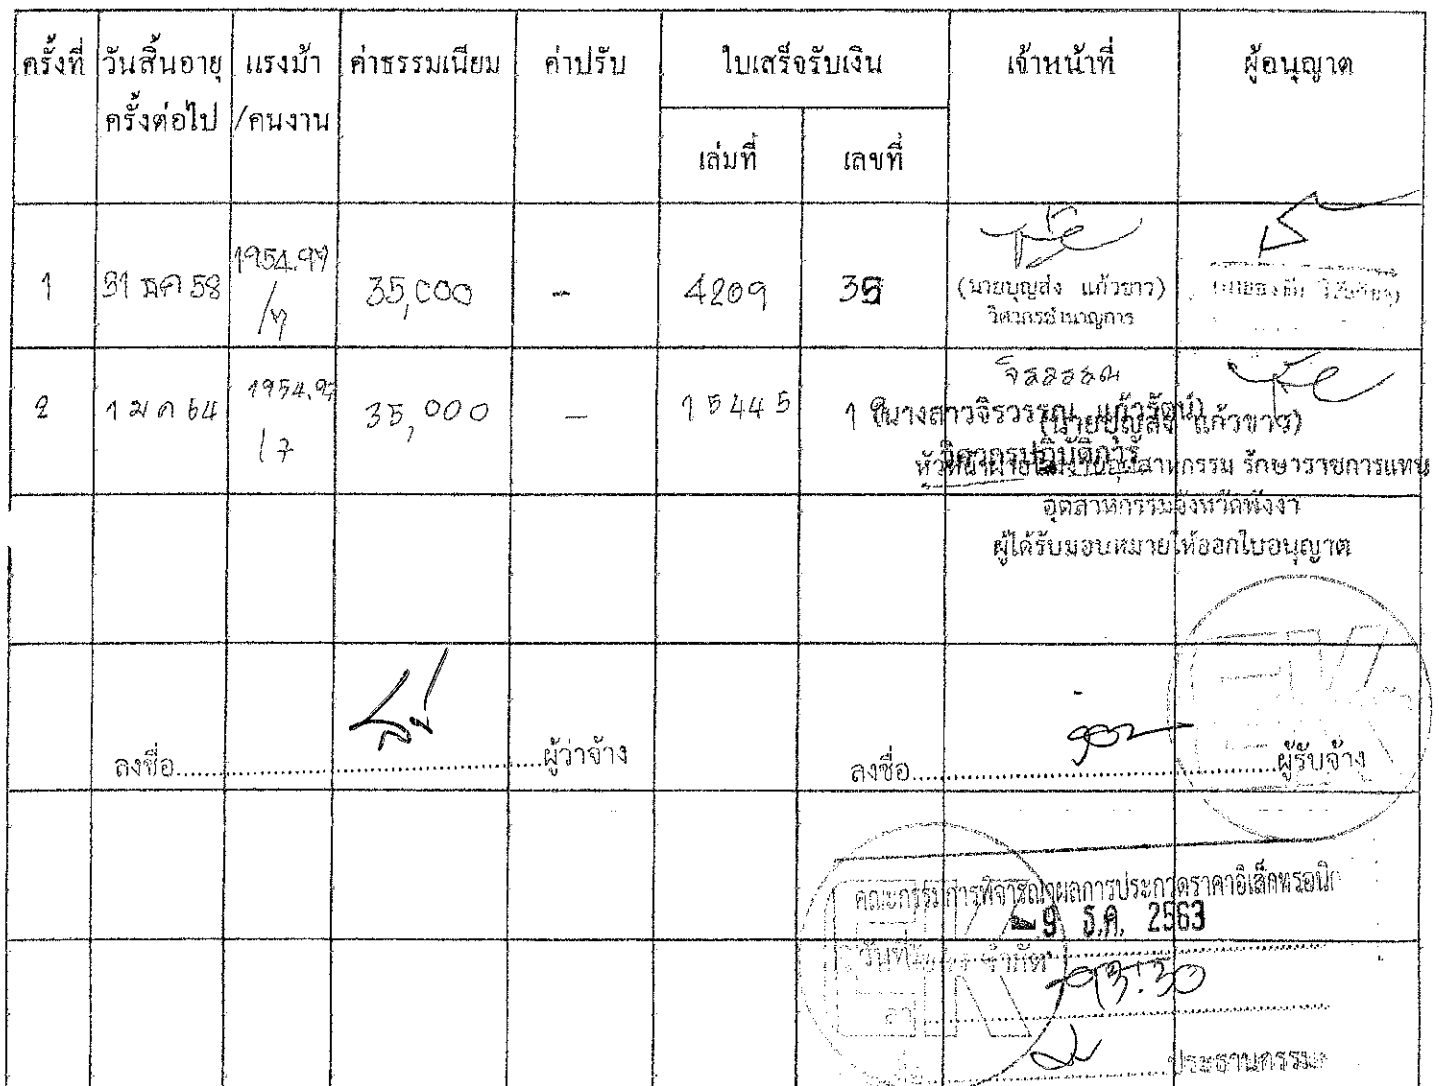 ครั้งที่ วันสิ้นอายุ แรงม้า ค่าธรรมเนียม ค่าปรับ ใบเสร็จรับเงิน เจ้าหน้าที่ ผู้อนุญาต
ครั้งต่อไป /คนงาน
เล่มที่ เลขที่
1 31 ธค 58 1954.97 35,000 - 4209 35 (นายบุญส่ง แก้วขาว)
/7 วิศวกรชำนาญการ
2 1 มค 64 1954.97 35,000 - 15445 1 (นางสาวจิรวรรณ แก้วรัตน์)
/7 วิศวกรปฏิบัติการ
(นายบุญส่ง แก้วขาว)
หัวหน้าฝ่ายโรงงานอุตสาหกรรม รักษาราชการแทน
อุตสาหกรรมจังหวัดพังงา
ผู้ได้รับมอบหมายให้ออกใบอนุญาต
ลงชื่อ..........ผู้ว่าจ้าง ลงชื่อ..........ผู้รับจ้าง
คณะกรรมการพิจารณาผลการประกวดราคาอิเล็กทรอนิก
วันที่ - 9 ธ.ค. 2563
13:30
ประธานกรรม